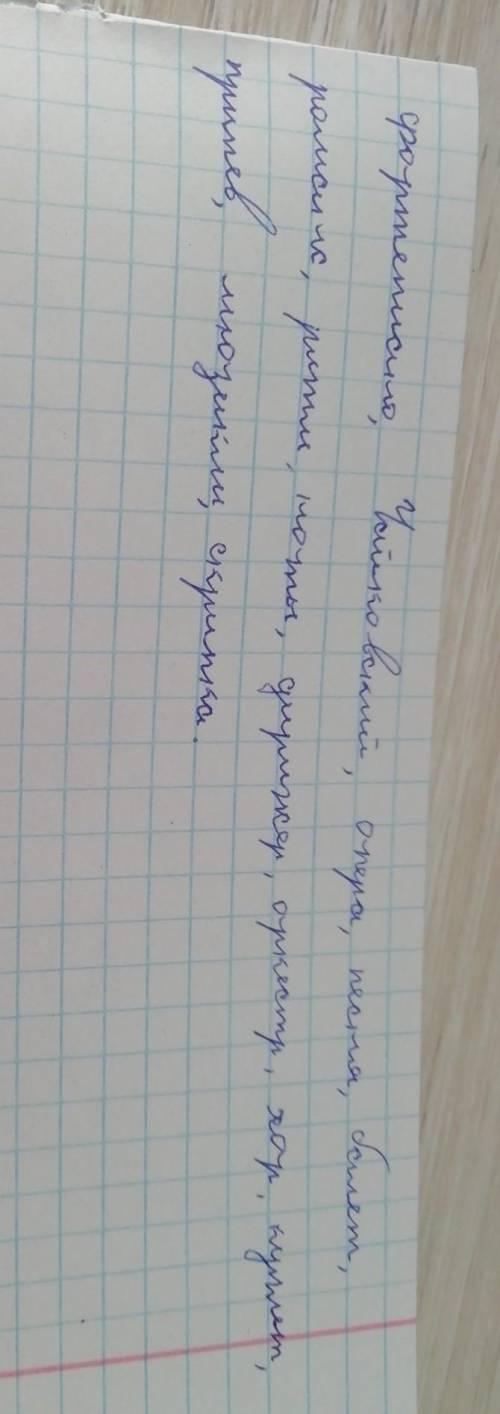 фортепиано, Чайковский, опера, песня, балет,
романс, ритм, ноты, дирижер, оркестр, хор, куплет,
припев, мюзикл, скрипка.